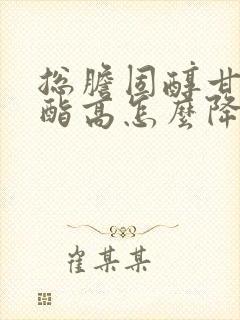 总膽固醇甘
酯高怎麼降
崔某某